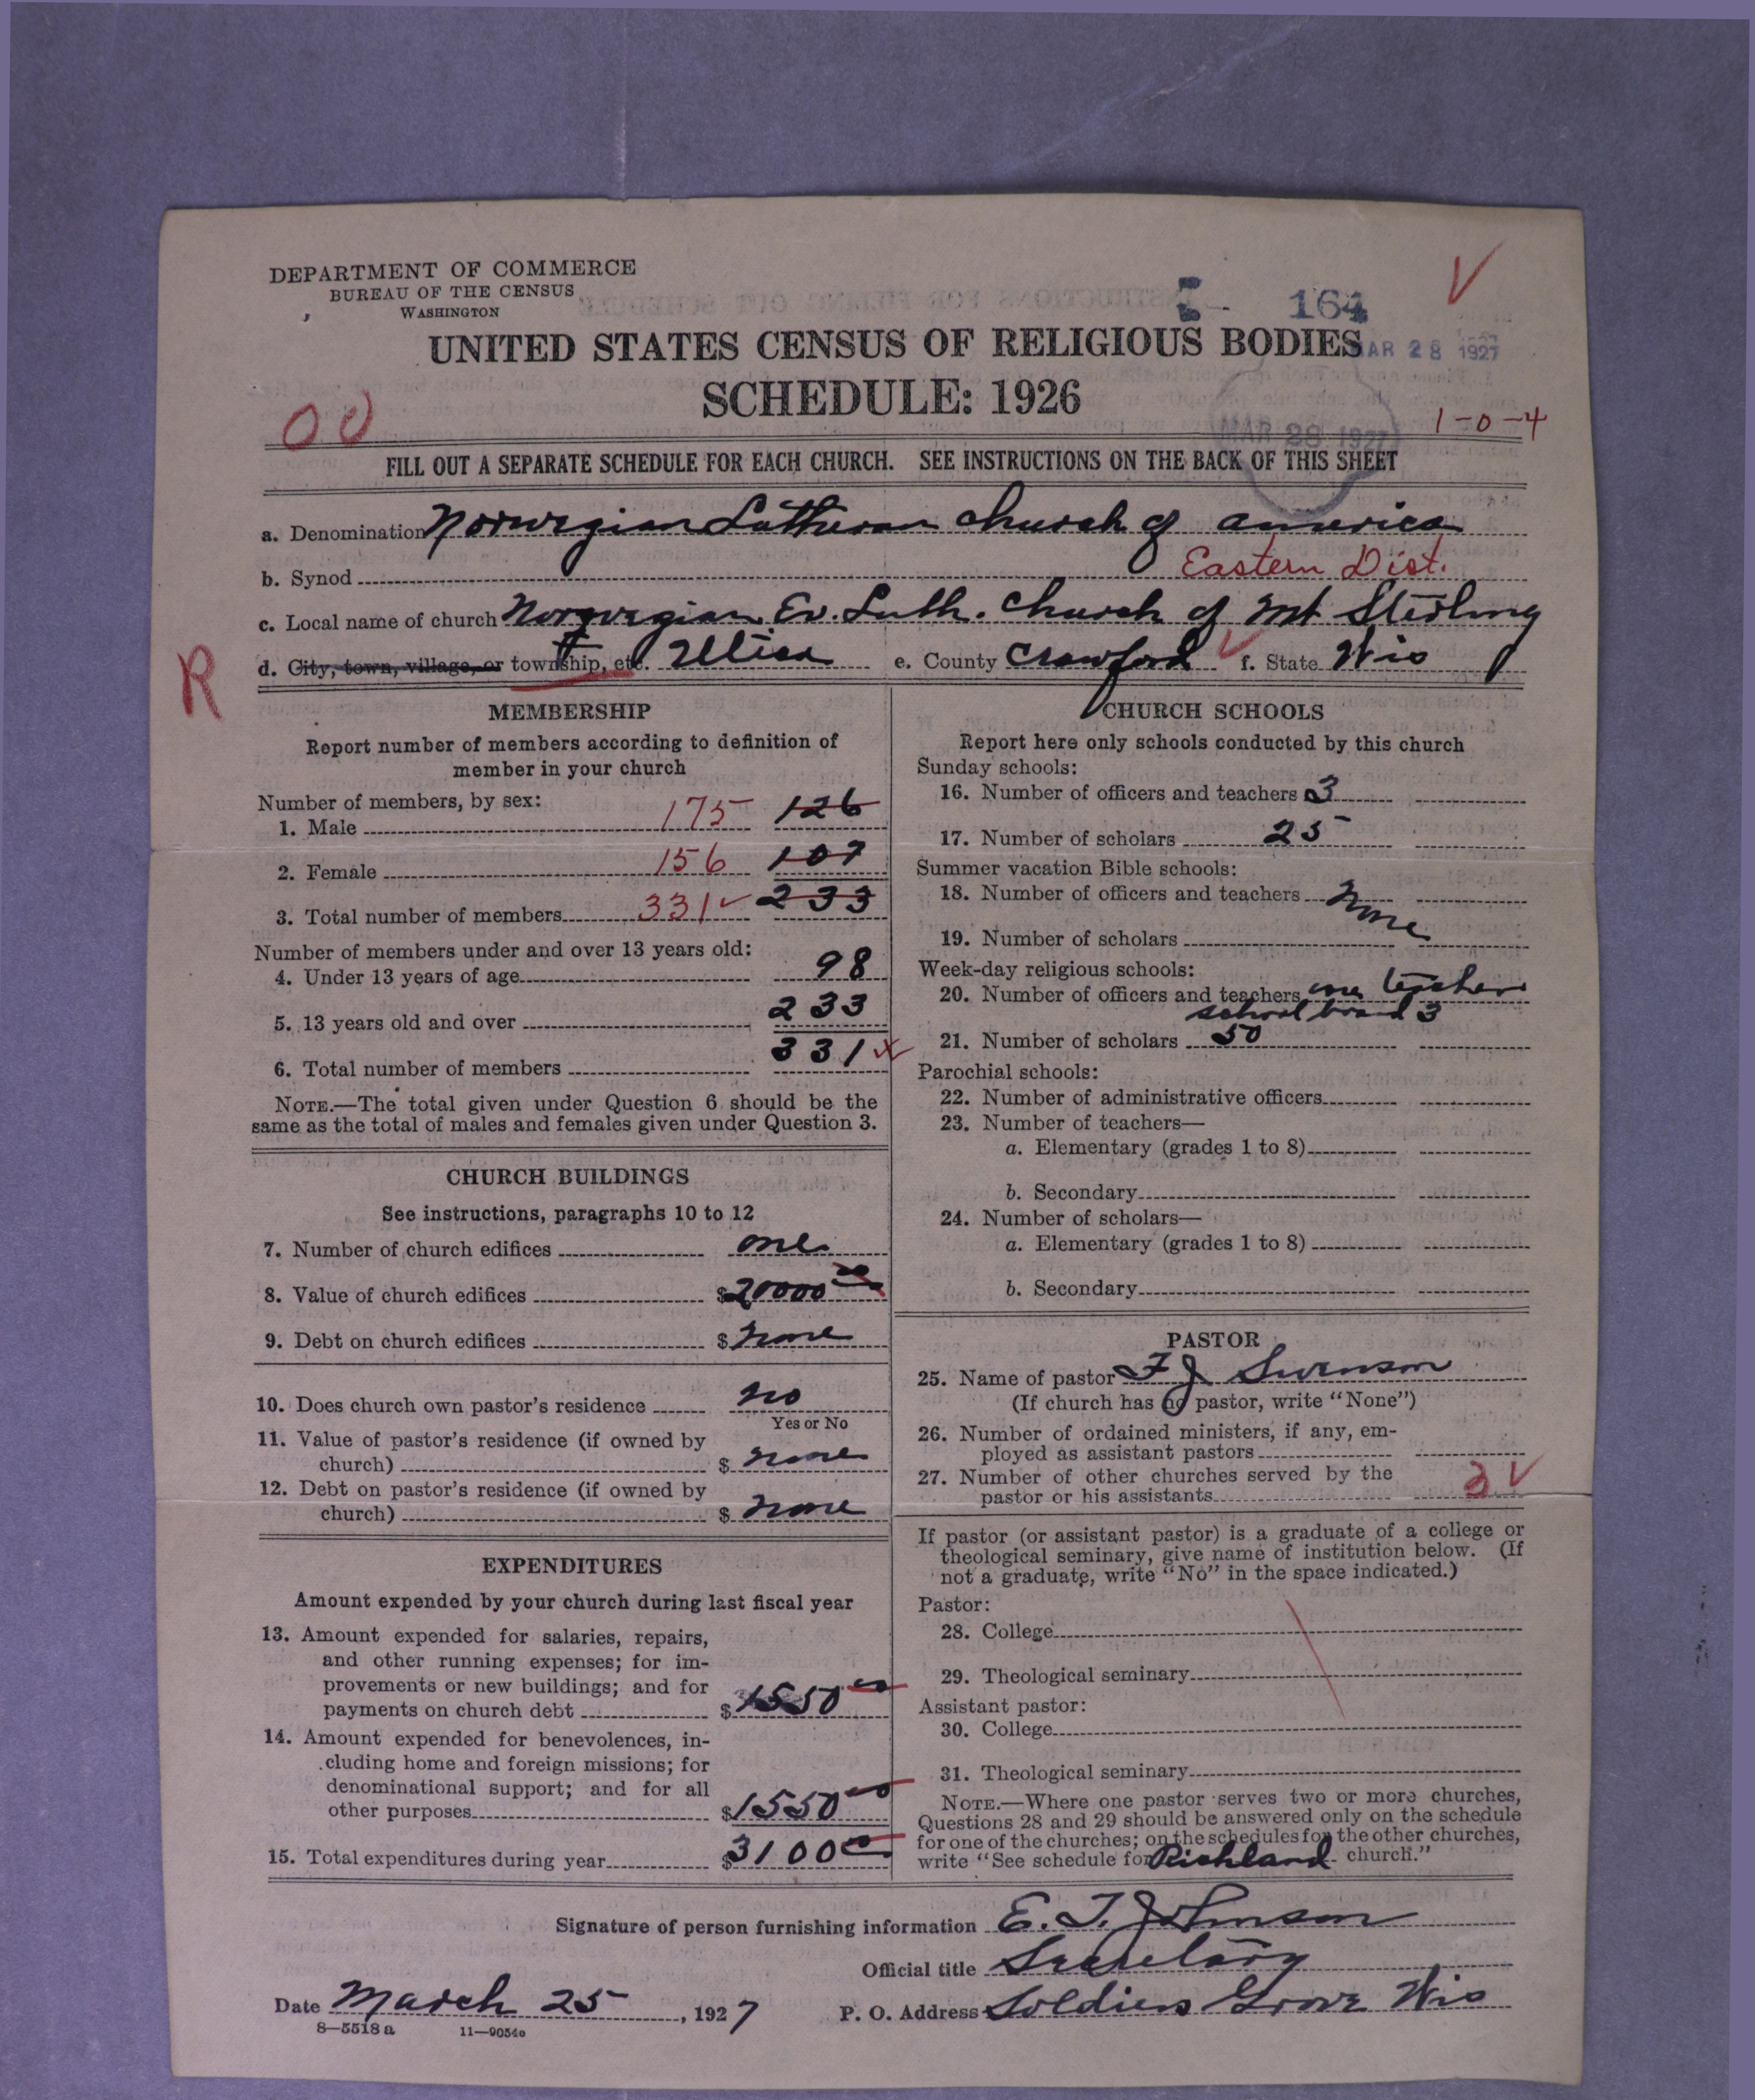 DEPARTMENT OF COMMERCE
BUREAU OF THE CENSUS
WASHINGTON
164
UNITED STATES CENSUS OF RELIGIOUS BODIES
MAR 28 1927
SCHEDULE: 1926
MAR 28 1927
1-0-4
FILL OUT A SEPARATE SCHEDULE FOR EACH CHURCH. SEE INSTRUCTIONS ON THE BACK OF THIS SHEET
a. Denomination Norwegian Lutheran Church of America
b. Synod Eastern Dist.
c. Local name of church Norwegian Ev. Luth. Church of Mt Sterling
d. City, town, village, or township, etc. Utica e. County Crawford f. State Wis
R
MEMBERSHIP
Report number of members according to definition of
member in your church
Number of members, by sex:
1. Male 175 126
2. Female 156 107
3. Total number of members 331 233
Number of members under and over 13 years old:
4. Under 13 years of age 98
5. 13 years old and over 233
6. Total number of members 331
NOTE.—The total given under Question 6 should be the
same as the total of males and females given under Question 3.
CHURCH BUILDINGS
See instructions, paragraphs 10 to 12
7. Number of church edifices one
8. Value of church edifices $20000 00
9. Debt on church edifices $ none
10. Does church own pastor's residence no
Yes or No
11. Value of pastor's residence (if owned by
church) $ none
12. Debt on pastor's residence (if owned by
church) $ none
EXPENDITURES
Amount expended by your church during last fiscal year
13. Amount expended for salaries, repairs,
and other running expenses; for im-
provements or new buildings; and for
payments on church debt $1550 00
14. Amount expended for benevolences, in-
cluding home and foreign missions; for
denominational support; and for all
other purposes $1550 00
15. Total expenditures during year $3100 00
CHURCH SCHOOLS
Report here only schools conducted by this church
Sunday schools:
16. Number of officers and teachers 3
17. Number of scholars 25
Summer vacation Bible schools:
18. Number of officers and teachers None
19. Number of scholars
Week-day religious schools:
20. Number of officers and teachers one teacher
school board 3
21. Number of scholars 50
Parochial schools:
22. Number of administrative officers
23. Number of teachers—
a. Elementary (grades 1 to 8)
b. Secondary
24. Number of scholars—
a. Elementary (grades 1 to 8)
b. Secondary
PASTOR
25. Name of pastor F J Swenson
(If church has no pastor, write "None")
26. Number of ordained ministers, if any, em-
ployed as assistant pastors
27. Number of other churches served by the
pastor or his assistants 2
If pastor (or assistant pastor) is a graduate of a college or
theological seminary, give name of institution below. (If
not a graduate, write "No" in the space indicated.)
Pastor:
28. College
29. Theological seminary
Assistant pastor:
30. College
31. Theological seminary
NOTE.—Where one pastor serves two or more churches,
Questions 28 and 29 should be answered only on the schedule
for one of the churches; on the schedules for the other churches,
write "See schedule for Richland church."
Signature of person furnishing information E. T. Johnson
Official title Secretary
Date March 25, 1927 P. O. Address Soldiers Grove Wis
8—5518 a 11—9054